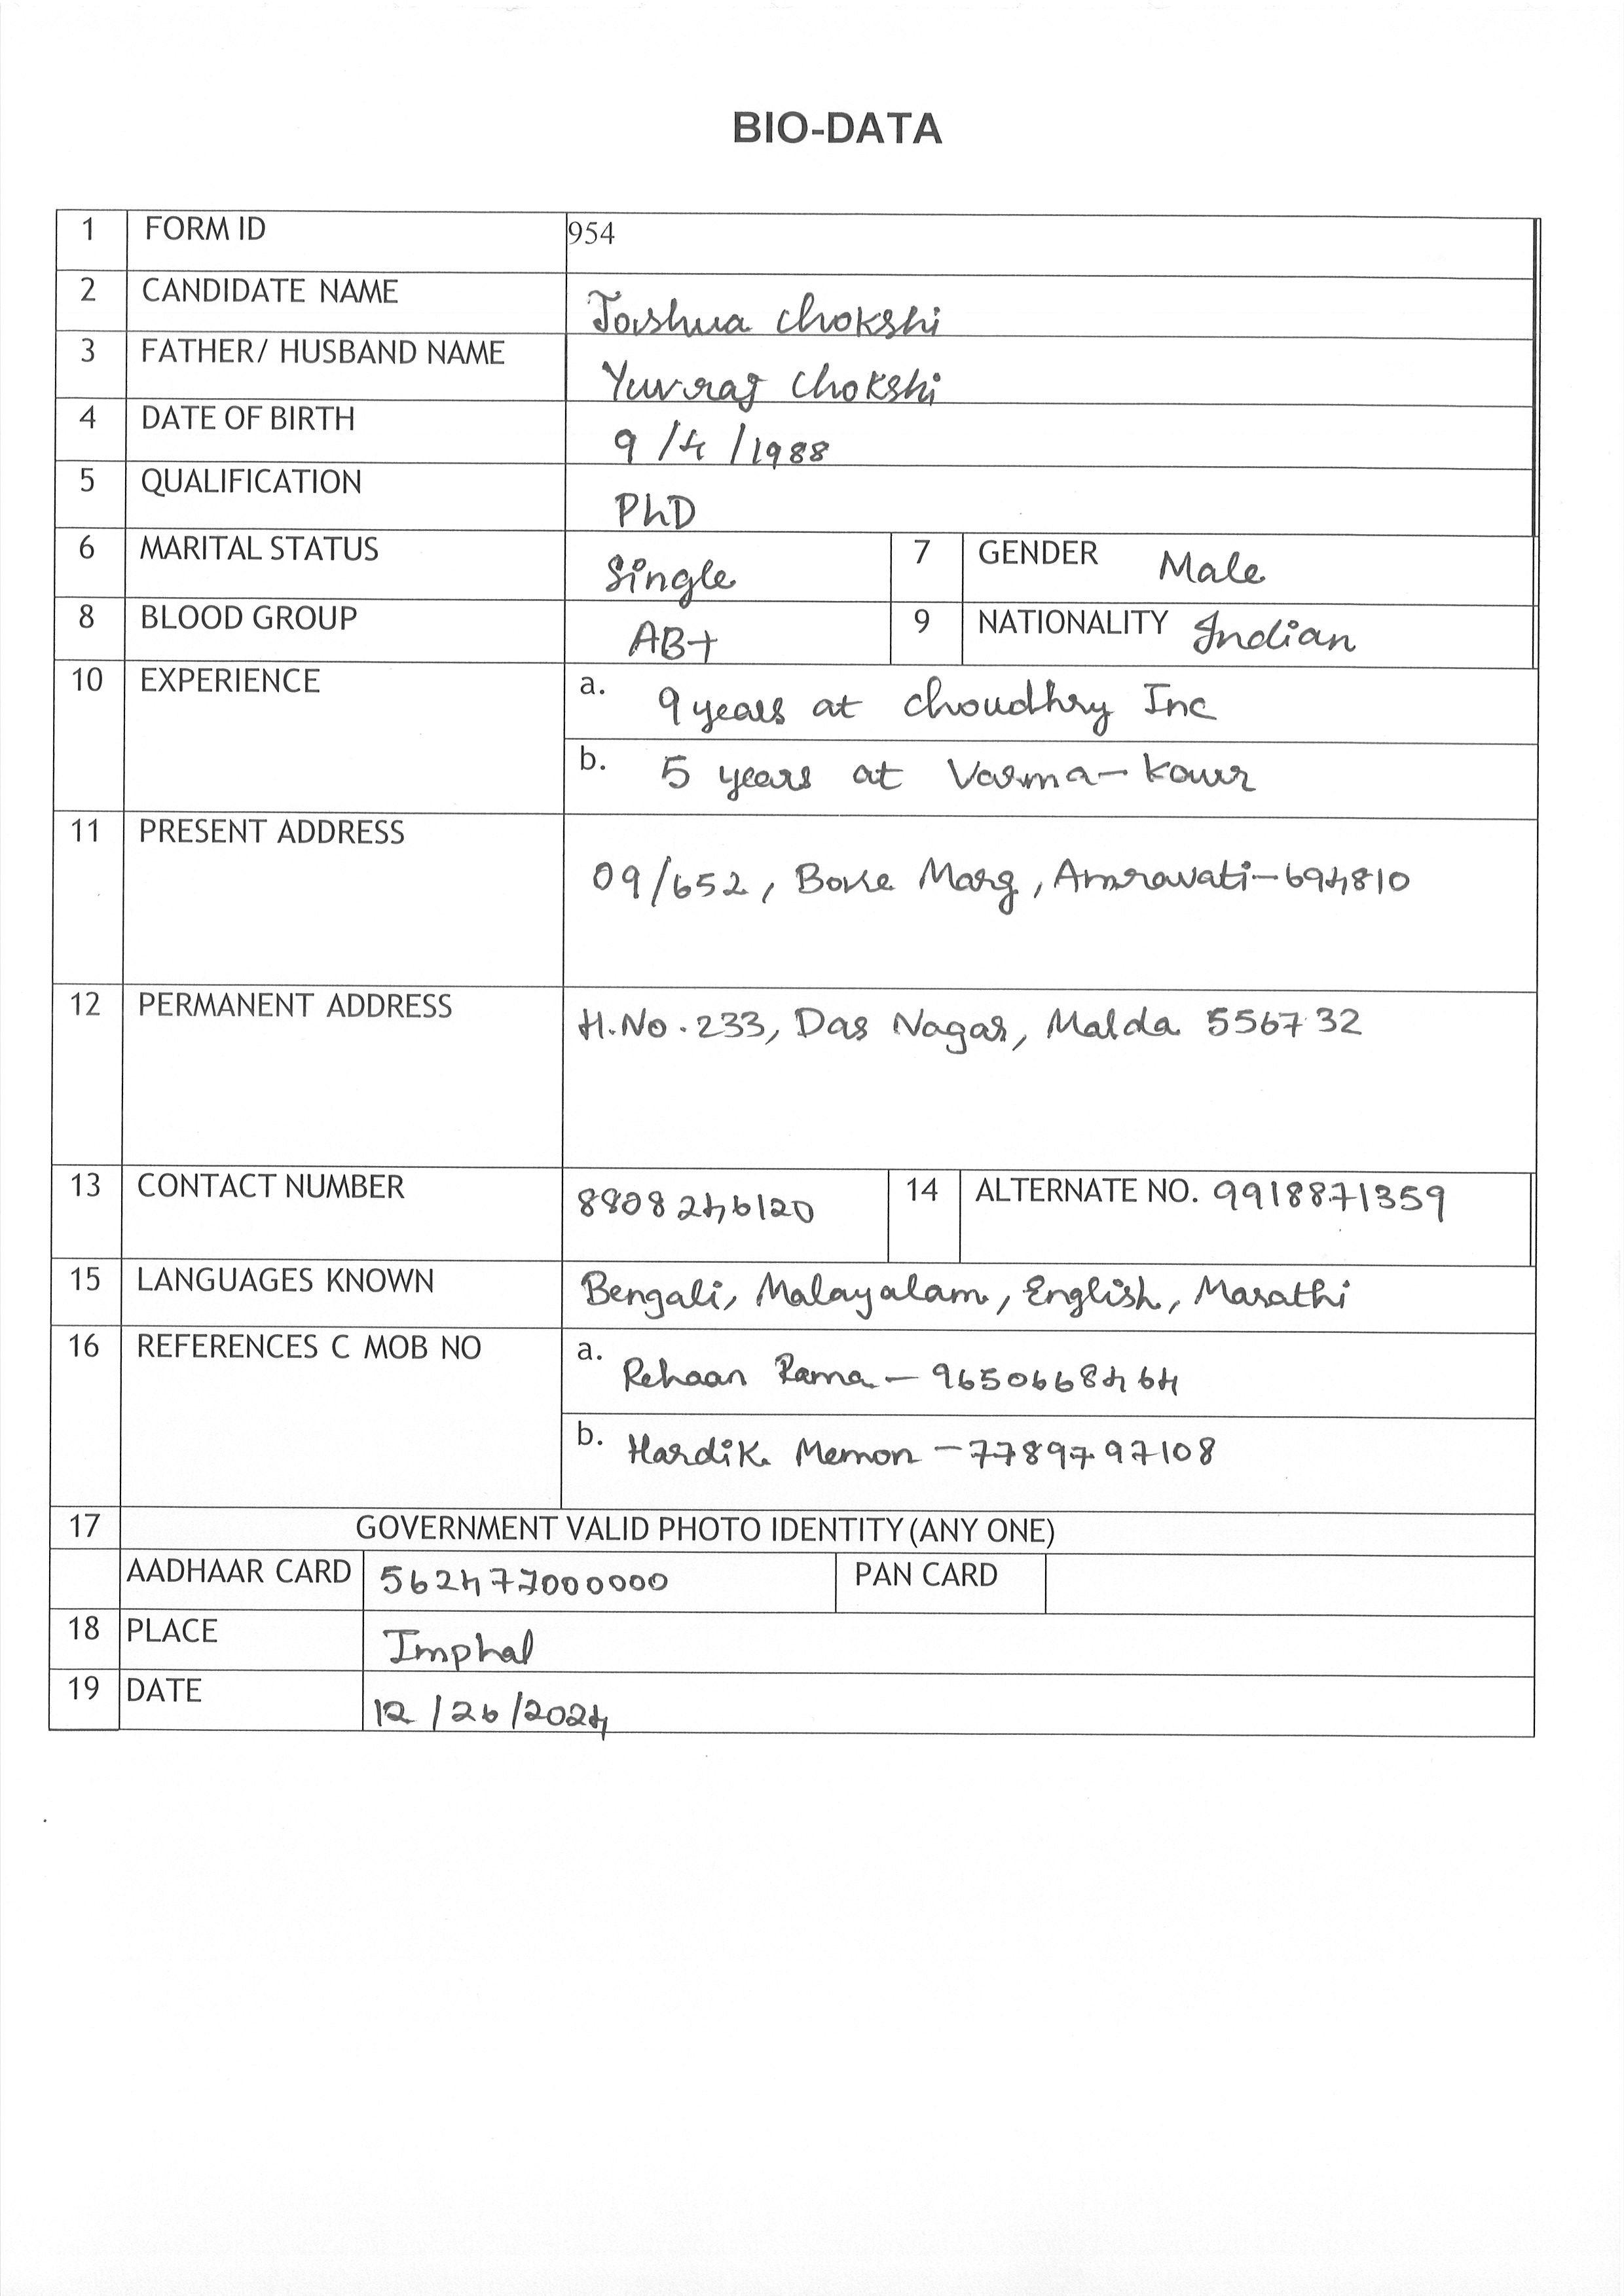 BIO-DATA
1 FORM ID 954
2 CANDIDATE NAME Joshua Chokshi
3 FATHER/ HUSBAND NAME Yuvraj Chokshi
4 DATE OF BIRTH 9/4/1988
5 QUALIFICATION PhD
6 MARITAL STATUS Single 7 GENDER Male
8 BLOOD GROUP AB+ 9 NATIONALITY Indian
10 EXPERIENCE a. 9 years at Choudhry Inc
b. 5 years at Varma-Kaur
11 PRESENT ADDRESS
09/652, Marg, Amravati-694810
12 PERMANENT ADDRESS H.No.233, Das Nagar, Malda 556732
13 CONTACT NUMBER 14 ALTERNATE NO. 9918871359
15 LANGUAGES KNOWN Bengali, Malayalam, English, Marathi
16 REFERENCES C MOB NO a. Rehaan Rama - 9650668464
b. Hardik Memon - 7789797108
17 GOVERNMENT VALID PHOTO IDENTITY (ANY ONE)
AADHAAR CARD 562477000000 PAN CARD
18 PLACE Imphal
19 DATE 12/26/2024